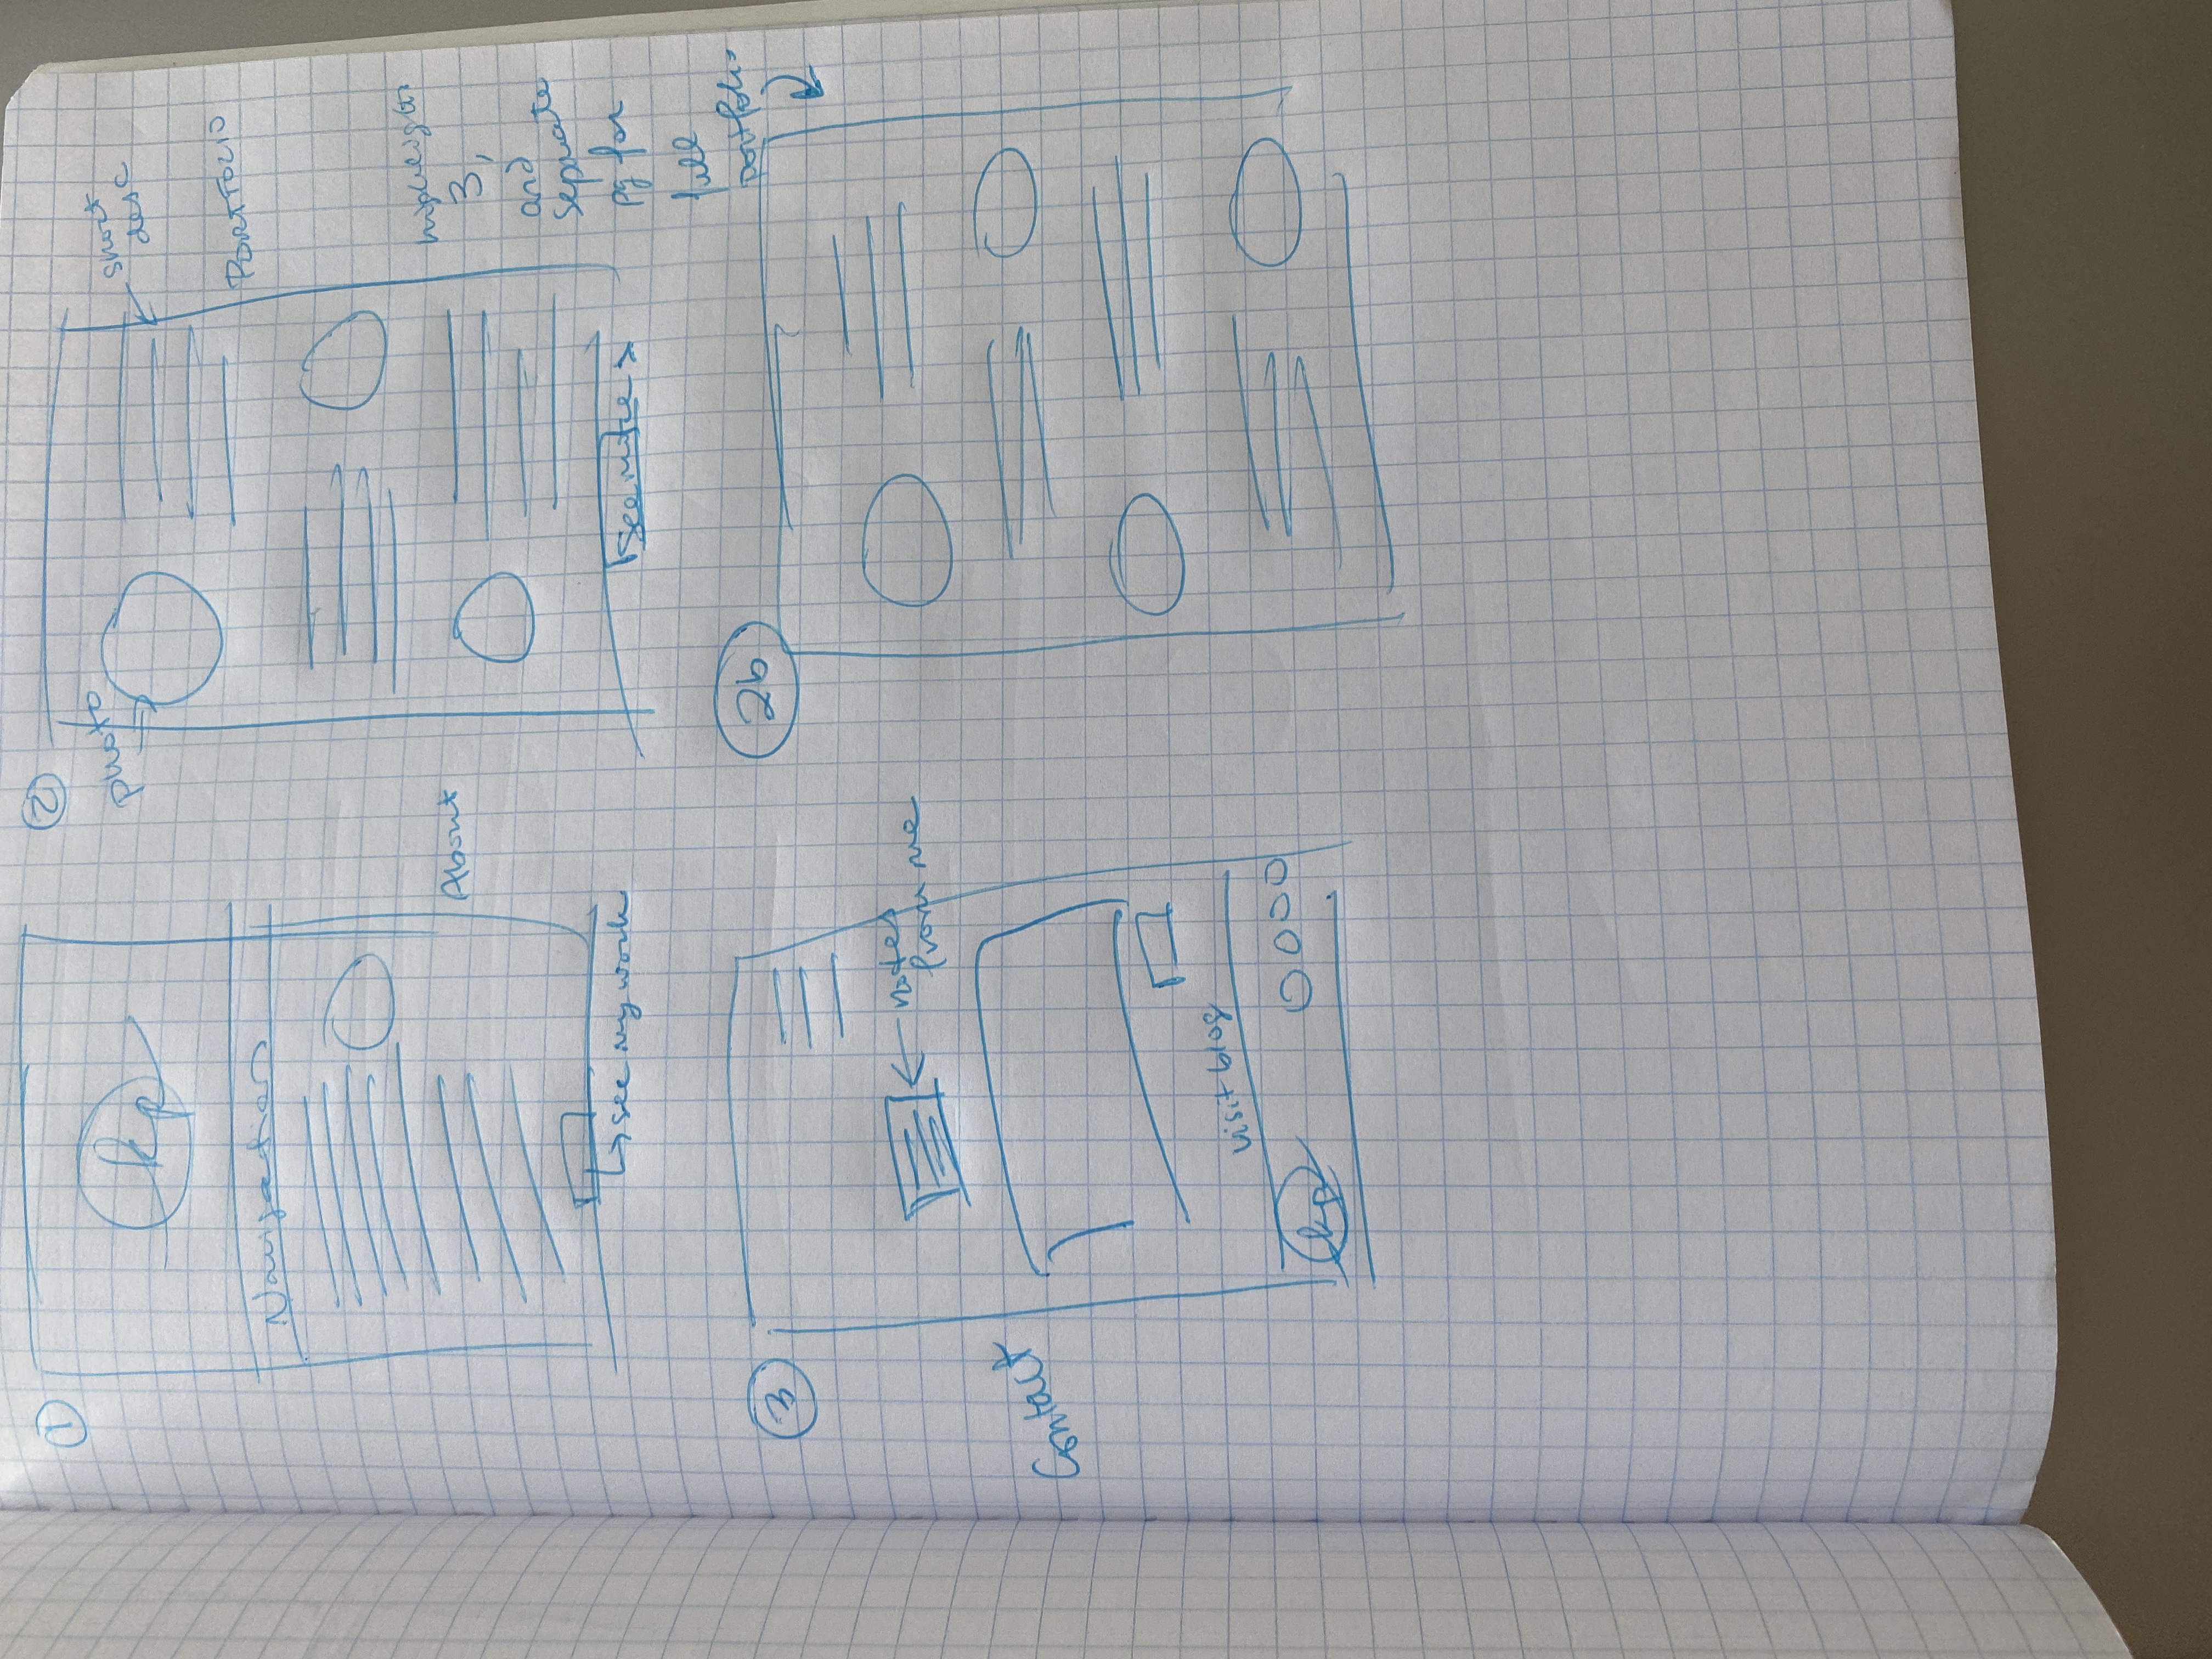 1
kp
Navigation
About
see my work
2
photo
short
desc
PORTFOLIO
highlight
3,
and
separate
pg for
full
portfolio
See more >
3
notes
from me
Contact
visit blog
kp
2b